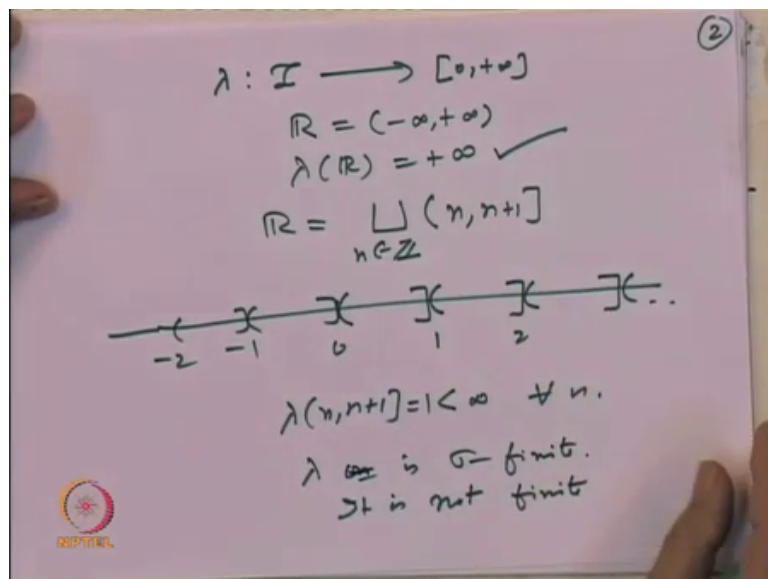 ②
λ : I ⟶ [0, +∞]
ℝ = (-∞, +∞)
λ(ℝ) = +∞ ✓
ℝ = ⨆ (n, n+1]
n∈ℤ
-2 -1 0 1 2 ..
λ(n, n+1] = 1 < ∞ ∀ n.
λ is σ- finit.
It is not finit
NPTEL